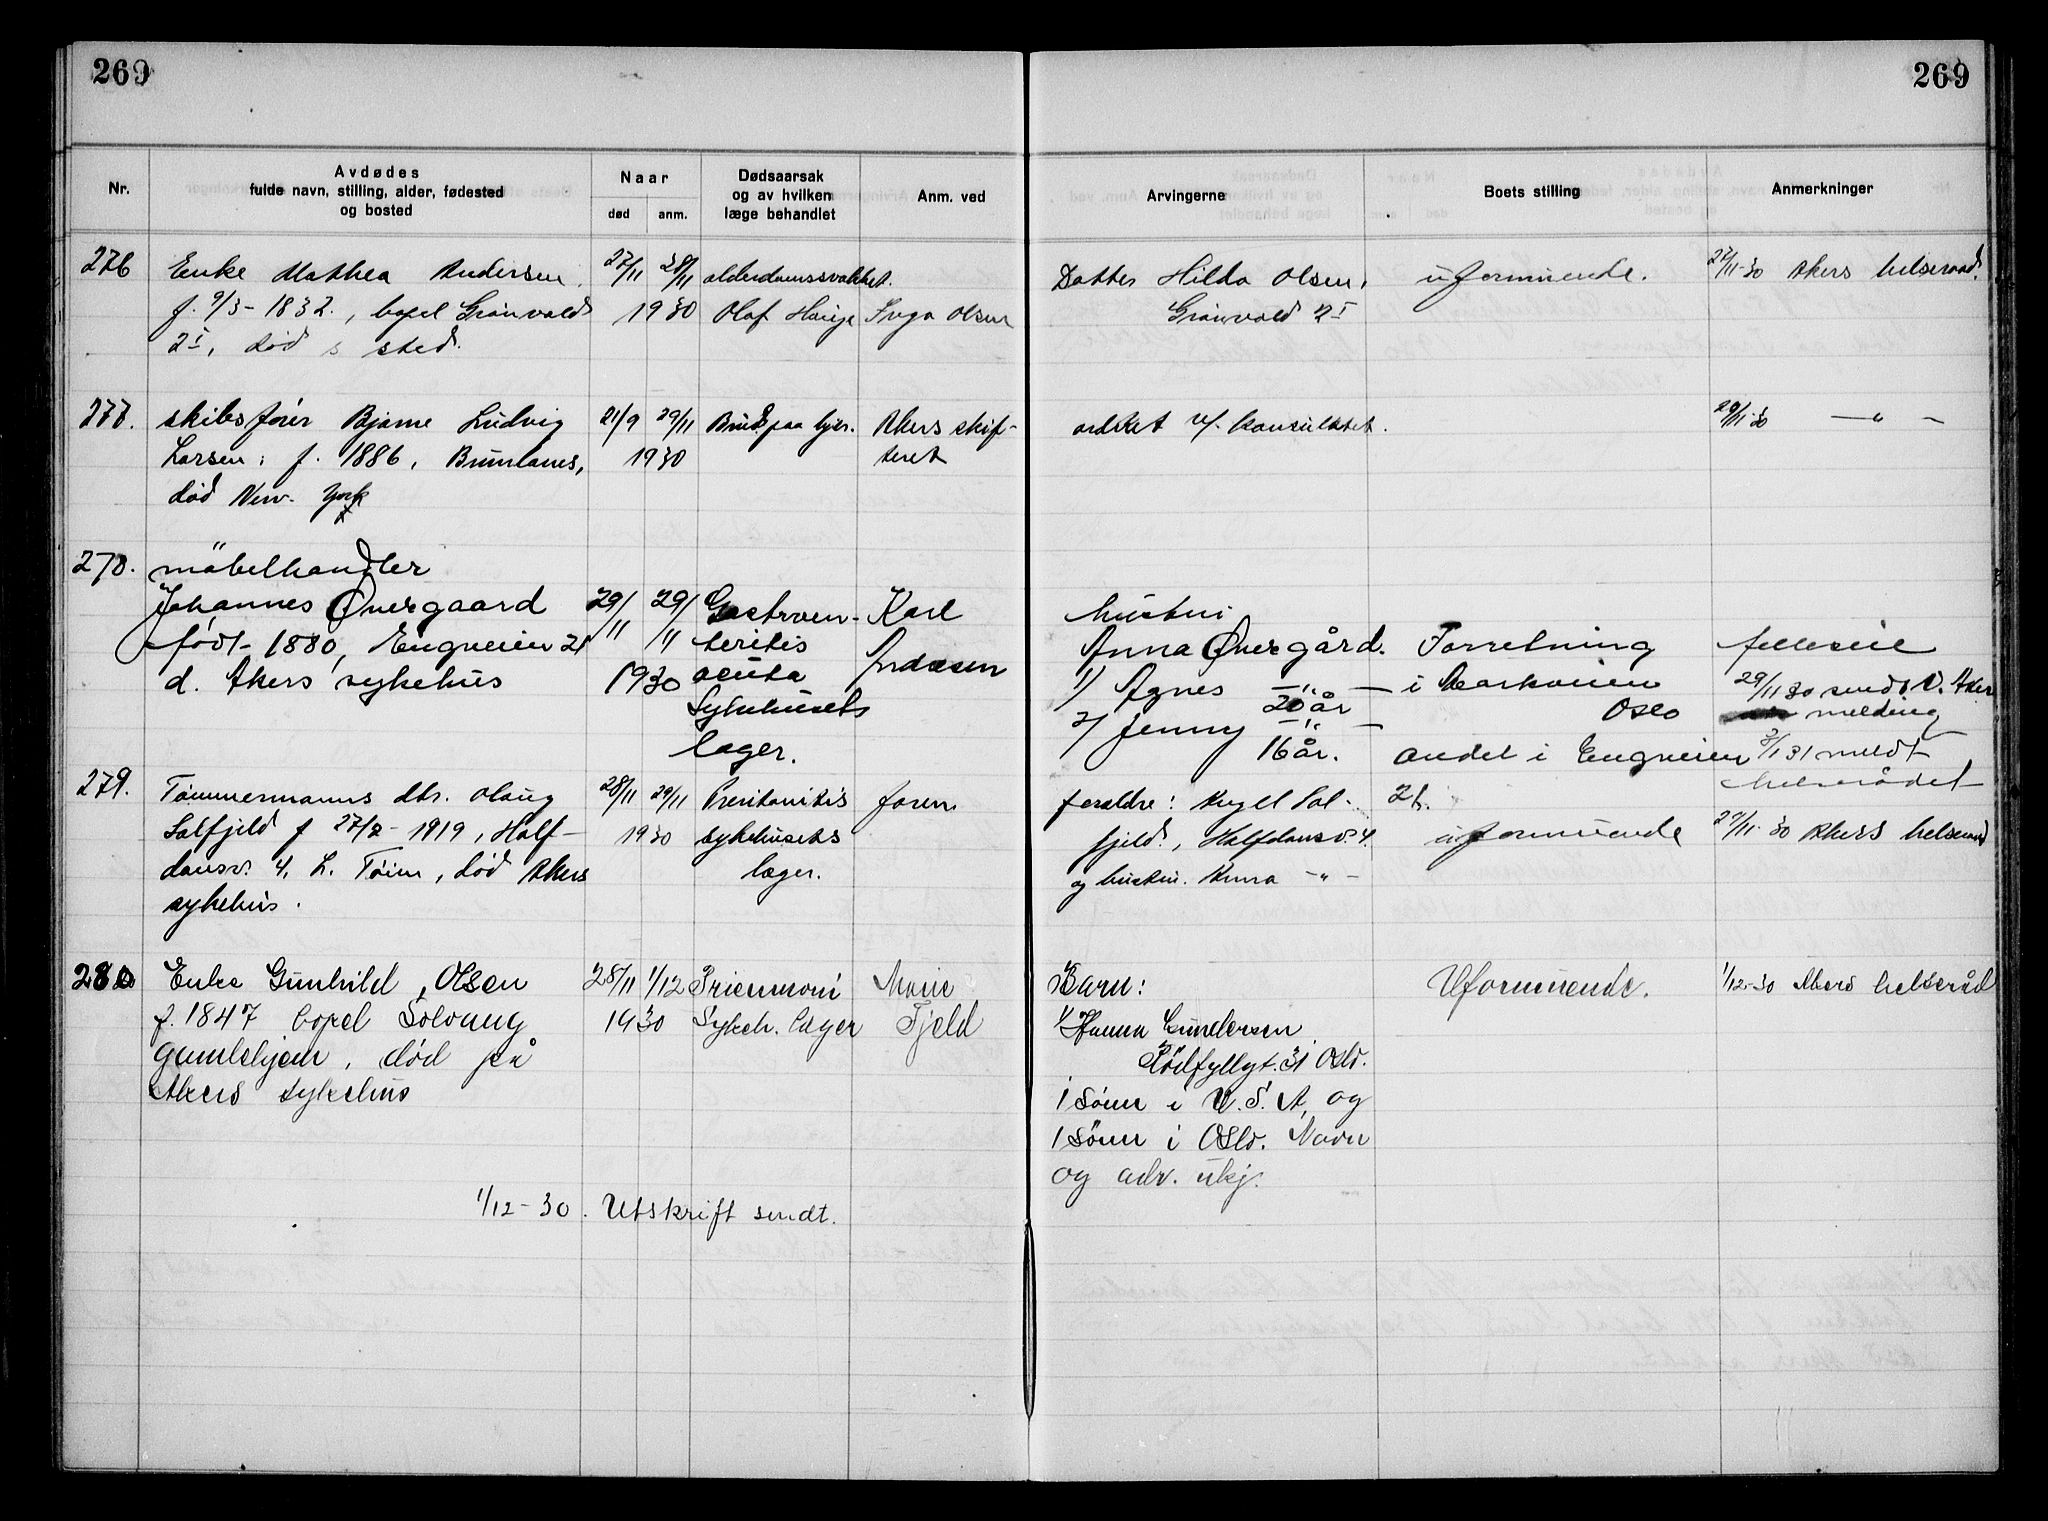 269
269
Nr.
Avdødes
fulde navn, stilling, alder, fødested
og bosted
Naar
død
anm.
Dødsaarsak
og av hvilken
læge behandlet
Anm. ved
Arvingerne
Boets stilling
Anmerkninger
276 Enke Mathea Andersen. 27/11 28/11 alderdomssvakhet. Datter Hilda Olsen, uformuende. 27/11-30 Akers helseraad.
f. 9/3-1832., bopel Grønvold 1930 Olaf Hauge Inga Olsen Grønvold 2I
2I, død s sted.
277. skibsfører Bjarne Ludvig 21/9 29/11 Akers skif- ordnet v/ konsulatet. 29/11-30 — " —
Larsen, f. 1886, 1930 teret
død New. York
278. møbelhandler
Johannes Øvergaard 29/11 29/11 Gastroen- Karl hustru
født 1880, Engveien 21 teritis Anna Øvergård. Forretning felleseie
d. Akers sykehus 1930 acuta Andresen 1/ Agnes — " — i Markveien 29/11 30 sendt V. Aker
Sykehusets 20 år Oslo melding
2/ Jenny — " —
læger. 16 år. andel i Engveien 2/1 31 meldt
279. Tømmermanns dtr. Olaug 28/11 29/11 Peritonitis foren foreldre: 21. helserådet
Solfjeld f 27/2-1919, Half- 1930 sykehusets fjeld, Halfdansv. 4. uformuende 29/11-30 Akers helseraad
dansv. 4, L. Tøien, død Akers læger. og hustru. Anna — " —
sykehus.
280 Enke Gunhild Olsen 28/11 1/12 Pneumoni Marie Barn: Uformuende. 1/12-30 Akers helseråd
f. 1847 bopel Solvang 1930 Sykeh. læger Fjeld 1/ Hanna Gundersen
Gamlehjem, død på Rødfyllgt. 31 Oslo.
Akers sykehus 1 sønn i U.S.A. og
1 sønn i Oslo. Navn
og adr. ukj.
1/12-30. Utskrift sendt.